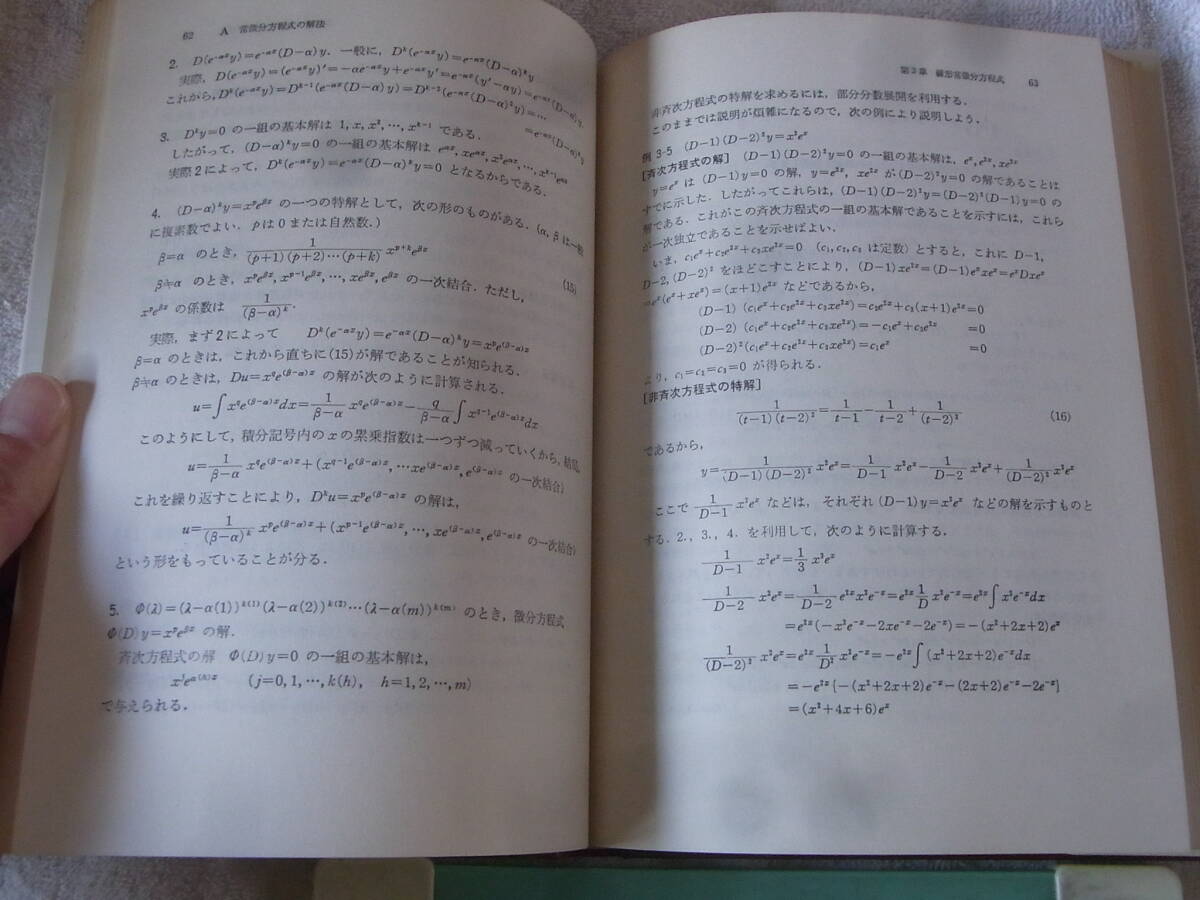 62 A 常微分方程式の解法
2. D(e^{-αx}y)=e^{-αx}(D-α)y. 一般に, D^k(e^{-αx}y)=e^{-αx}(D-α)^k y
実際, D(e^{-αx}y)=(e^{-αx}y)'=-αe^{-αx}y+e^{-αx}y'=e^{-αx}(y'-αy)=e^{-αx}(D-α)y.
これから, D^k(e^{-αx}y)=D^{k-1}(e^{-αx}(D-α)y)=D^{k-2}(e^{-αx}(D-α)^2y)=…
=e^{-αx}(D-α)^k y
3. D^k y=0 の一組の基本解は 1, x, x^2, …, x^{k-1} である.
したがって, (D-α)^k y=0 の一組の基本解は e^{αx}, xe^{αx}, x^2e^{αx}, …, x^{k-1}e^{αx}
実際 2 によって, D^k(e^{-αx}y)=e^{-αx}(D-α)^k y=0 となるからである.
4. (D-α)^k y=x^p e^{βx} の一つの特解として, 次の形のものがある. (α, β は一般
に複素数でよい. p は 0 または自然数.)
β=α のとき, \frac{1}{(p+1)(p+2)…(p+k)} x^{p+k}e^{βx}
(15)
β≠α のとき, x^p e^{βx}, x^{p-1}e^{βx}, …, xe^{βx}, e^{βx} の一次結合. ただし,
x^p e^{βx} の係数は \frac{1}{(β-α)^k}.
実際, まず 2 によって D^k(e^{-αx}y)=e^{-αx}(D-α)^k y=x^p e^{(β-α)x}
β=α のときは, これから直ちに (15) が解であることが知られる.
β≠α のときは, Du=x^q e^{(β-α)x} の解が次のように計算される.
u=∫x^q e^{(β-α)x}dx=\frac{1}{β-α} x^q e^{(β-α)x}-\frac{q}{β-α}∫x^{q-1}e^{(β-α)x}dx
このようにして, 積分記号内の x の累乗指数は一つずつ減っていくから, 結局,
u=\frac{1}{β-α} x^q e^{(β-α)x}+(x^{q-1}e^{(β-α)x}, …xe^{(β-α)x}, e^{(β-α)x} の一次結合)
これを繰り返すことにより, D^k u=x^p e^{(β-α)x} の解は,
u=\frac{1}{(β-α)^k} x^p e^{(β-α)x}+(x^{p-1}e^{(β-α)x}, …, xe^{(β-α)x}, e^{(β-α)x} の一次結合)
という形をもっていることが分る.
5. Φ(λ)=(λ-α(1))^{k(1)}(λ-α(2))^{k(2)}…(λ-α(m))^{k(m)} のとき, 微分方程式
Φ(D)y=x^p e^{βx} の解.
斉次方程式の解 Φ(D)y=0 の一組の基本解は,
x^j e^{α(h)x} (j=0, 1, …, k(h), h=1, 2, …, m)
で与えられる.
第3章 線形常微分方程式 63
非斉次方程式の特解を求めるには, 部分分数展開を利用する.
このままでは説明が煩雑になるので, 次の例により説明しよう.
例 3-5 (D-1)(D-2)^2y=x^2e^x
[斉次方程式の解] (D-1)(D-2)^2y=0 の一組の基本解は, e^x, e^{2x}, xe^{2x}
y=e^x は (D-1)y=0 の解, y=e^{2x}, xe^{2x} が (D-2)^2y=0 の解であることは
すでに示した. したがってこれらは, (D-1)(D-2)^2y=(D-2)^2(D-1)y=0 の
解である. これがこの斉次方程式の一組の基本解であることを示すには, これら
が一次独立であることを示せばよい.
いま, c_1e^x+c_2e^{2x}+c_3xe^{2x}=0 (c_1, c_2, c_3 は定数) とすると, これに D-1,
D-2, (D-2)^2 をほどこすことにより, (D-1)xe^{2x}=(D-1)e^xxe^x=e^xDxe^x
=e^x(e^x+xe^x)=(x+1)e^{2x} などであるから,
(D-1) (c_1e^x+c_2e^{2x}+c_3xe^{2x})=c_2e^{2x}+c_3(x+1)e^{2x}=0
(D-2) (c_1e^x+c_2e^{2x}+c_3xe^{2x})=-c_1e^x+c_3e^{2x} =0
(D-2)^2(c_1e^x+c_2e^{2x}+c_3xe^{2x})=c_1e^x =0
より, c_1=c_2=c_3=0 が得られる.
[非斉次方程式の特解]
\frac{1}{(t-1)(t-2)^2}=\frac{1}{t-1}-\frac{1}{t-2}+\frac{1}{(t-2)^2} (16)
であるから,
y=\frac{1}{(D-1)(D-2)^2} x^2e^x=\frac{1}{D-1} x^2e^x-\frac{1}{D-2} x^2e^x+\frac{1}{(D-2)^2} x^2e^x
ここで \frac{1}{D-1} x^2e^x などは, それぞれ (D-1)y=x^2e^x などの解を示すものと
する. 2., 3., 4. を利用して, 次のように計算する.
\frac{1}{D-1} x^2e^x=\frac{1}{3} x^3e^x
\frac{1}{D-2} x^2e^x=\frac{1}{D-2} e^{2x}x^2e^{-x}=e^{2x}\frac{1}{D} x^2e^{-x}=e^{2x}∫x^2e^{-x}dx
=e^{2x}(-x^2e^{-x}-2xe^{-x}-2e^{-x})=-(x^2+2x+2)e^x
\frac{1}{(D-2)^2} x^2e^x=e^{2x}\frac{1}{D^2} x^2e^{-x}=-e^{2x}∫(x^2+2x+2)e^{-x}dx
=-e^{2x}{-(x^2+2x+2)e^{-x}-(2x+2)e^{-x}-2e^{-x}}
=(x^2+4x+6)e^x